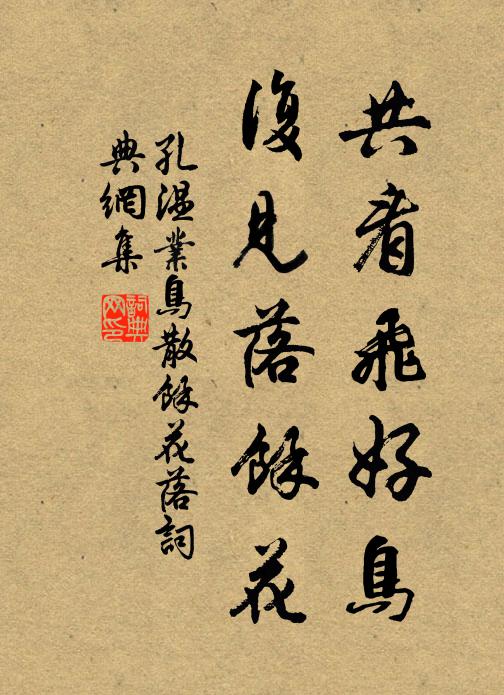 共看飛好鳥
復見落餘花
孔溫業鳥散餘花落詞
典網集
詞典
网印